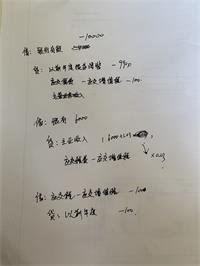 -10000
借: 银行存款
贷: 以前年度损益调整 -9900
应交税费-应交增值税 -100
借: 银行 6000
贷: 主营业收入
应交税费-应交增值税 ×0.03
借: 应交税-应交增值税 -100
贷: 以前年度 -100